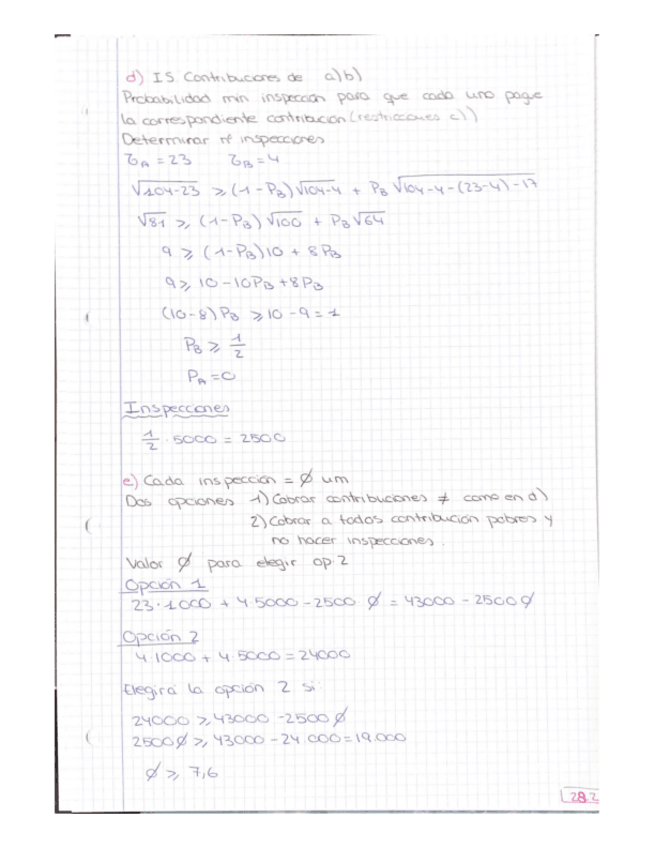 d) IS Contribuciones de a)b)
Probabilidad min inspección para que cada uno pague
la correspondiente contribución (restricciones c))
Determinar nº inspecciones
τA = 23 τB = 4
√104-23 ≥ (1-PB)√104-4 + PB √104-4-(23-4)-17
√81 ≥ (1-PB)√100 + PB√64
9 ≥ (1-PB)10 + 8PB
9 ≥ 10-10PB+8PB
(10-8)PB ≥ 10-9=1
PB ≥ 1/2
PA=0
Inspecciones
1/2 · 5000 = 2500
e) Cada inspección = ∅ um
Dos opciones 1) Cobrar contribuciones ≠ como en d)
2) Cobrar a todos contribución pobres y
no hacer inspecciones.
Valor ∅ para elegir op. 2
Opción 1
23·1000 + 4·5000 - 2500 ∅ = 43000 - 2500∅
Opción 2
4·1000 + 4·5000 = 24000
Elegirá la opción 2 si
24000 ≥ 43000 - 2500∅
2500∅ ≥ 43000 - 24.000 = 19.000
∅ ≥ 7,6
28.2